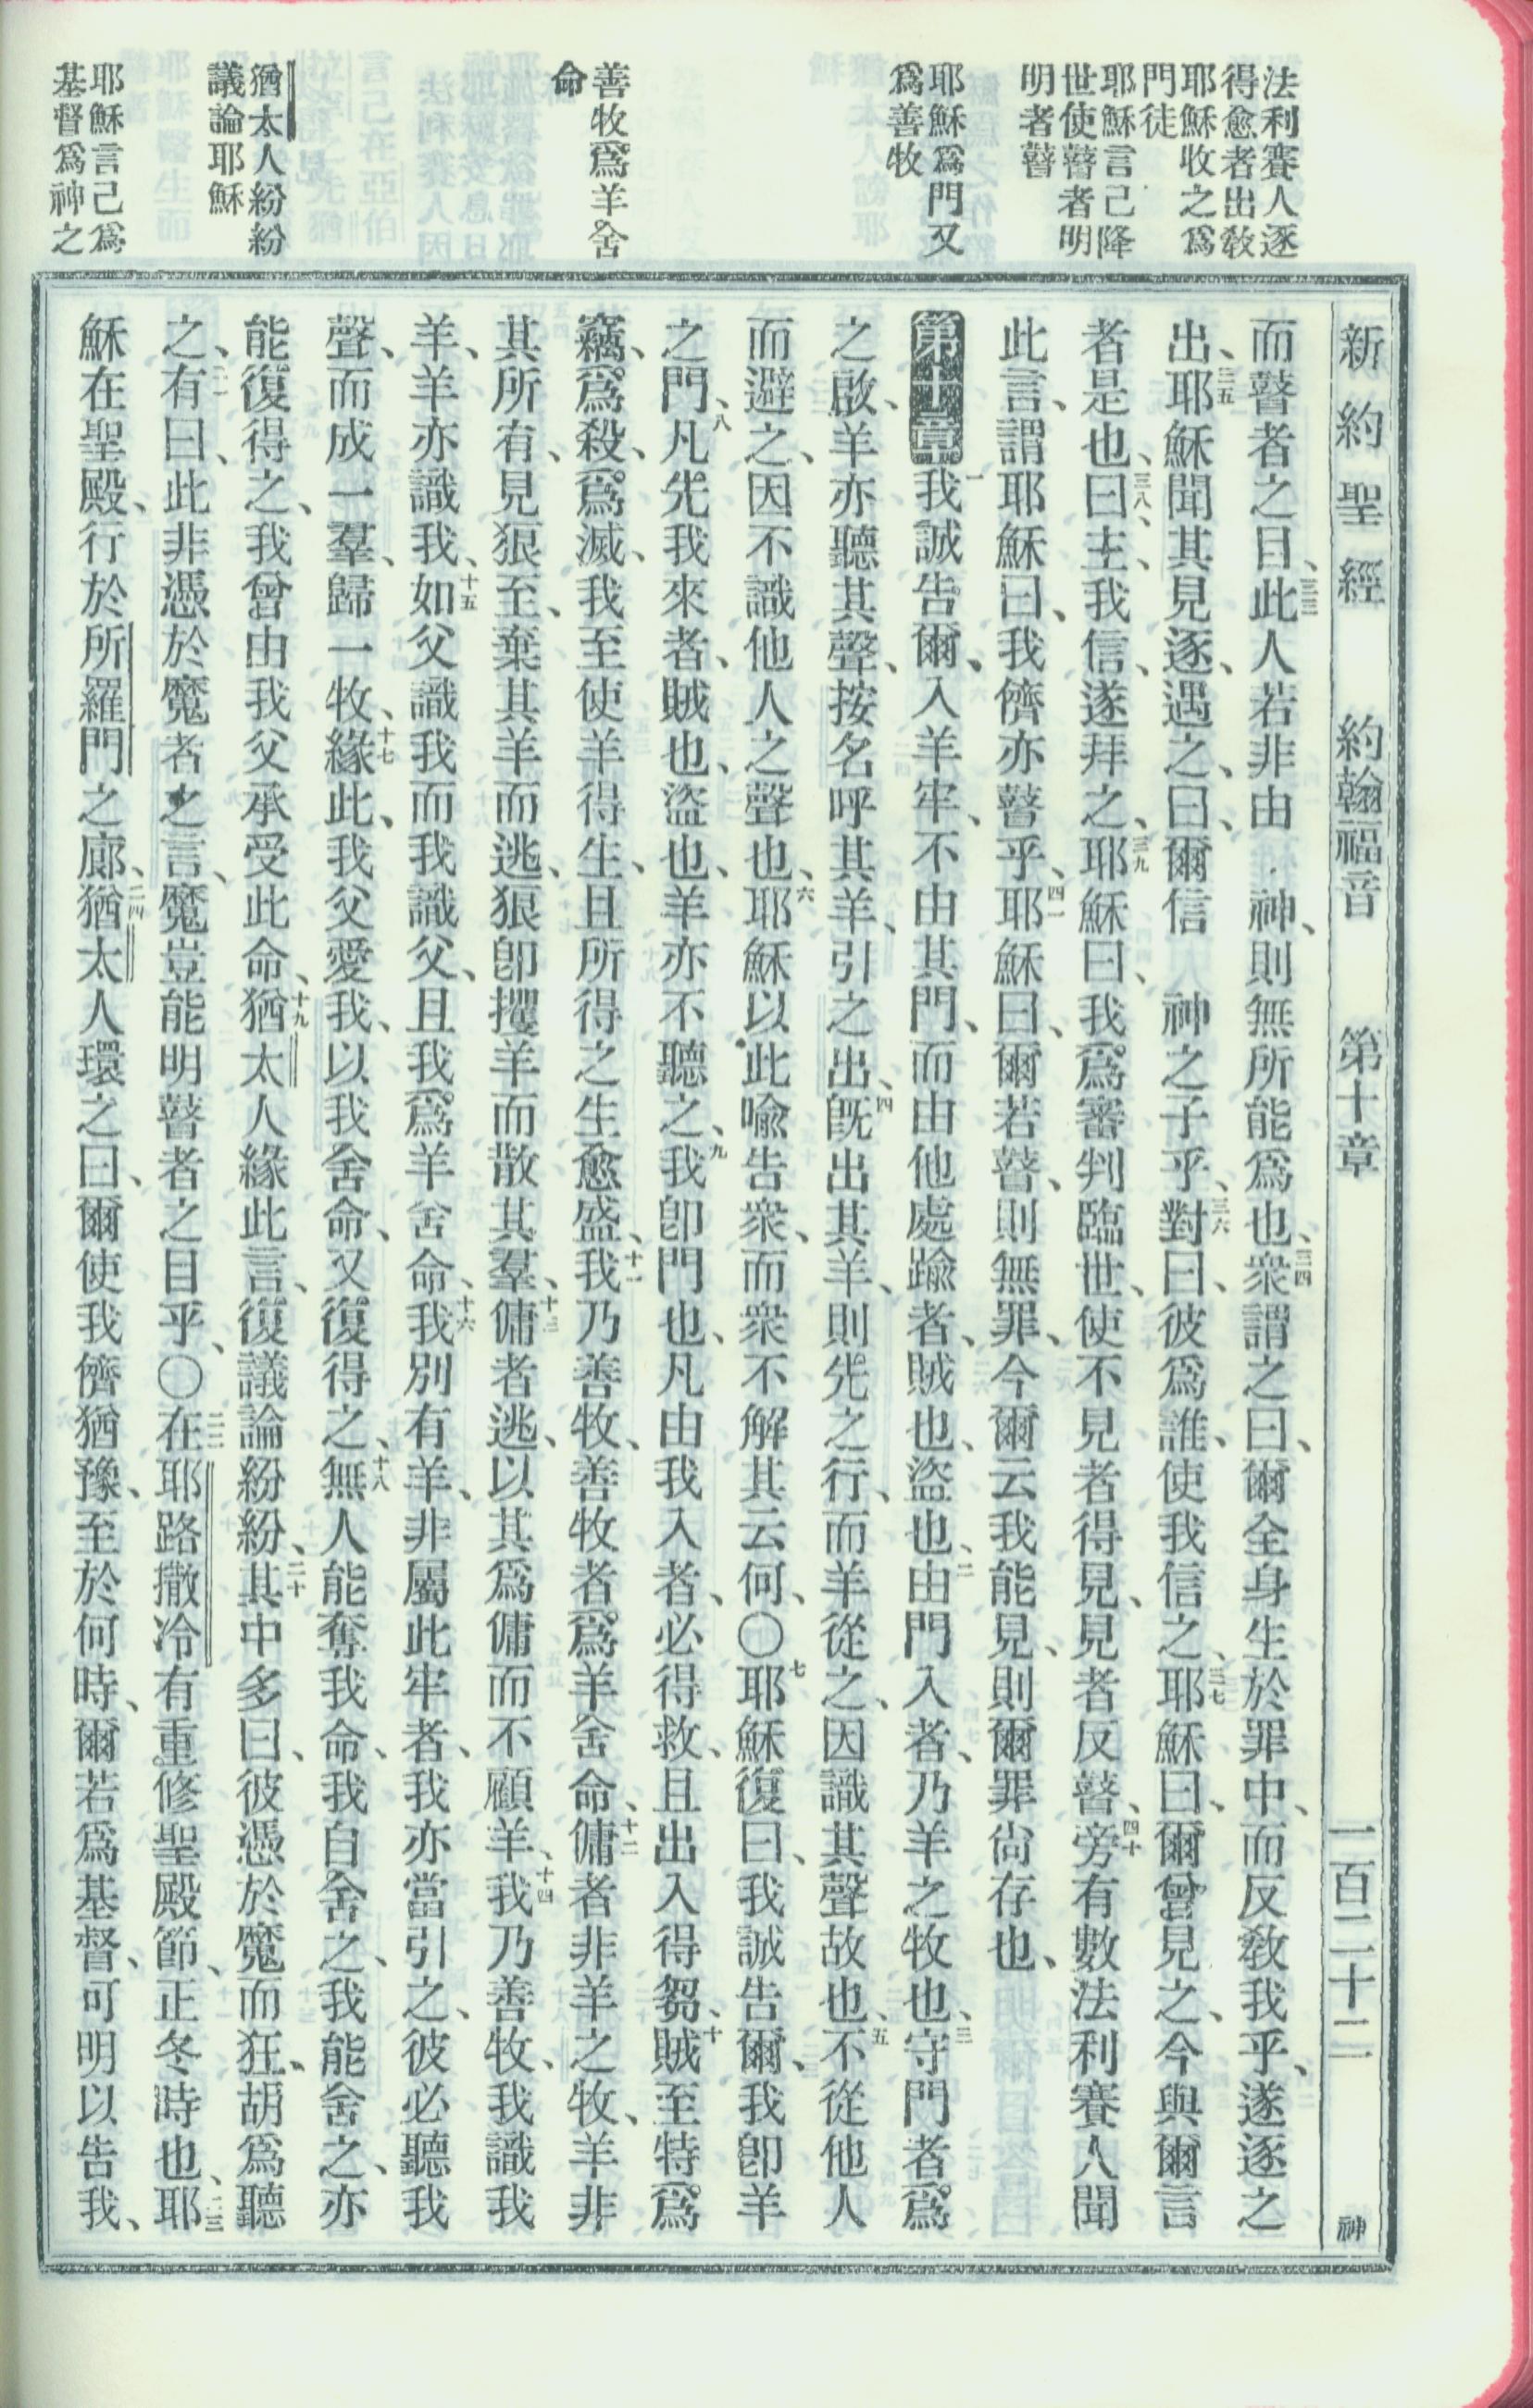 新約聖經 約翰福音 第十章 一百二十二 神
法利賽人逐
得愈者出敎
耶穌收之爲
門徒
耶穌言己降
世使瞽者明
明者瞽
耶穌爲門又
爲善牧
善牧爲羊舍
命
猶太人紛紛
議論耶穌
耶穌言己爲
基督爲神之
而瞽者之目、三三此人若非由 神、則無所能爲也、三四衆謂之曰、爾全身生於罪中、而反敎我乎、遂逐之
出、三五耶穌聞其見逐、遇之、曰、爾信 神之子乎、三六對曰、彼爲誰、使我信之、三七耶穌曰、爾曾見之、今與爾言
者是也、三八曰、主、我信、遂拜之、三九耶穌曰、我爲審判臨世、使不見者得見、見者反瞽、四十旁有數法利賽人聞
此言、謂耶穌曰、我儕亦瞽乎、四一耶穌曰、爾若瞽、則無罪、今爾云我能見、則爾罪尙存也、
第十章一我誠告爾、入羊牢、不由其門、而由他處踰者、賊也、盜也、二由門入者、乃羊之牧也、三守門者爲
之啟、羊亦聽其聲、按名呼其羊、引之出、四旣出其羊、則先之行、而羊從之、因識其聲故也、五不從他人
而避之、因不識他人之聲也、六耶穌以此喩告衆、而衆不解其云何、〇七耶穌復曰、我誠告爾、我卽羊
之門、八凡先我來者、賊也、盜也、羊亦不聽之、九我卽門也、凡由我入者、必得救、且出入得芻、十賊至特爲
竊、爲殺、爲滅、我至使羊得生、且所得之生愈盛、十一我乃善牧、善牧者爲羊舍命、十二傭者非羊之牧、羊非
其所有、見狼至、棄其羊而逃、狼卽攫羊而散其羣、十三傭者逃、以其爲傭而不顧羊、十四我乃善牧、我識我
羊、羊亦識我、十五如父識我而我識父、且我爲羊舍命、十六我別有羊、非屬此牢者、我亦當引之、彼必聽我
聲、而成一羣、歸一牧、十七緣此、我父愛我、以我舍命、又復得之、十八無人能奪我命、我自舍之、我能舍之、亦
能復得之、我曾由我父承受此命、十九猶太人緣此言、復議論紛紛、二十其中多曰、彼憑於魔而狂、胡爲聽
之、二一有曰、此非憑於魔者之言、魔豈能明瞽者之目乎、〇二二在耶路撒冷有重修聖殿節、正冬時也、二三耶
穌在聖殿、行於所羅門之廊、二四猶太人環之曰、爾使我儕猶豫、至於何時、爾若爲基督、可明以告我、